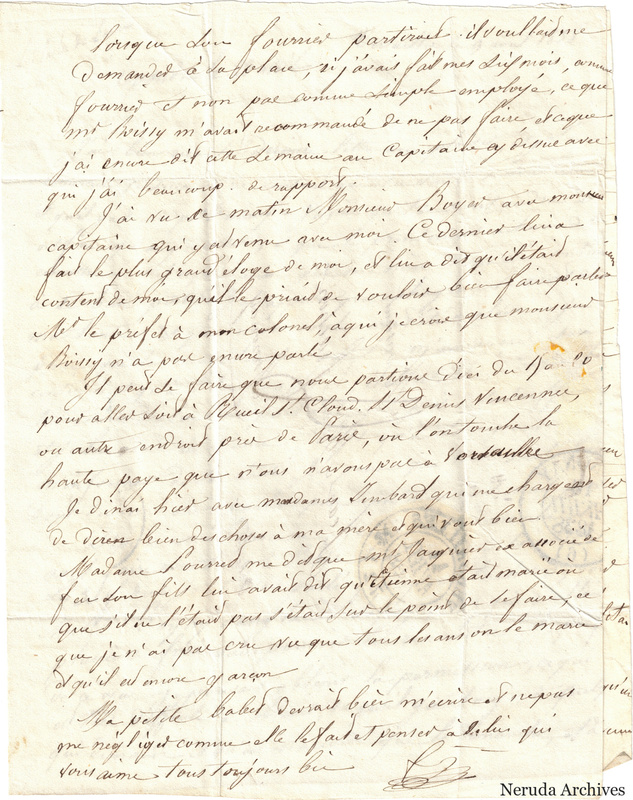 lorsque son fourrier partirait il voullait me
demander à sa place, si j'avais fait mes six mois, comme
fourrier et non pas comme simple employé, ce que
mr Boissy m'avait recommandé de ne pas faire et ce que
j'ai encore dit cette semaine au Capitaine cy dessus avec
qui j'ai beaucoup de rapport.
J'ai vu ce matin Monsieur Boyer avec mon
capitaine qui y est venu avec moi Ce dernier lui a
fait le plus grand éloge de moi, et lui a dit qu'il était
content de moi, qu'il le priait de vouloir bien faire parler
Mr le préfet à mon colonel, à qui je crois que monsieur
Boissy n'a pas encore parlé
Il peut se faire que nous partions d'ici du 15 au 20
pour aller soit à Rueil St. Cloud, St Denis Vincennes,
ou autre endroit près de Paris, où l'on touche la
haute paye que n'ous n'avons pas à Versailles
Je dinai hier avec mesdames qui me chargent
de dire bien des choses à ma mère et qui vont bien
Madame me dit que mr ex associé de
feu son fils lui avait dit qu'Etienne était marié ou
que s'il ne l'était pas s'était sur le point de le faire, ce
que je n'ai pas cru vu que tous les ans on le marie
et qu'il est encore garçon
Ma petite babet devrait bien m'écrire et ne pas
me négliger comme elle le fait et penser à celui qui
vous aime tous toujours bien
Neruda Archives